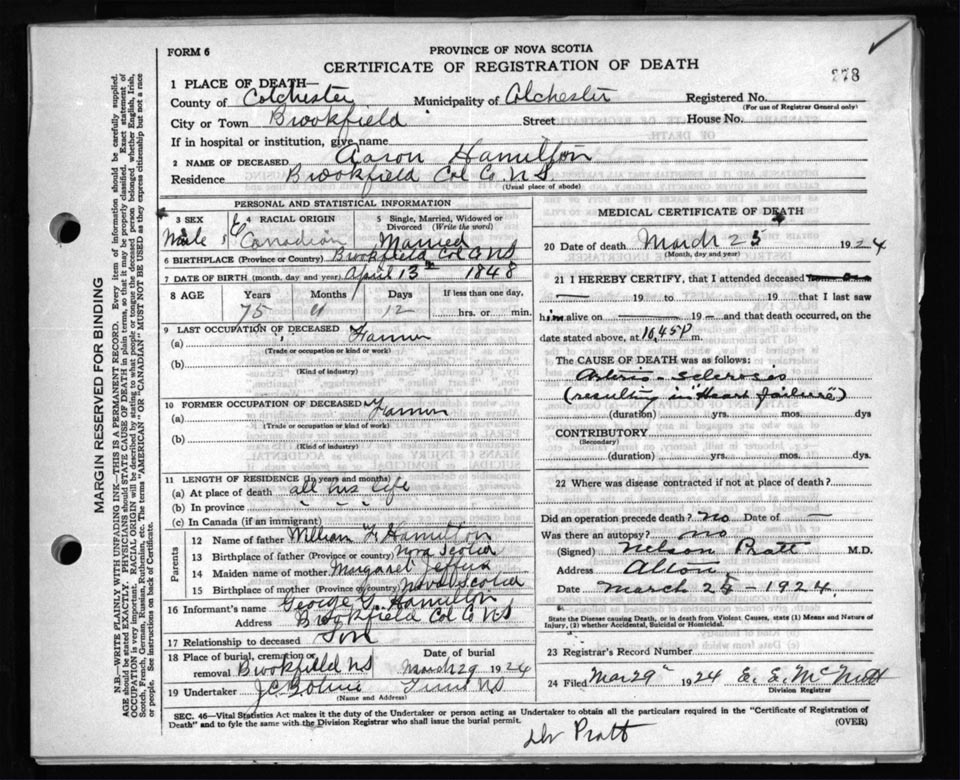 FORM 6
PROVINCE OF NOVA SCOTIA
CERTIFICATE OF REGISTRATION OF DEATH
278
1 PLACE OF DEATH—
County of Colchester Municipality of Colchester Registered No.
(For use of Registrar General only)
City or Town Brookfield Street House No.
If in hospital or institution, give name
2 NAME OF DECEASED Aaron Hamilton
Residence Brookfield Col Co. N S
(Usual place of abode)
PERSONAL AND STATISTICAL INFORMATION
3 SEX
Male
4 RACIAL ORIGIN
Canadian
5 Single, Married, Widowed or Divorced (Write the word)
Married
6 BIRTHPLACE (Province or Country) Brookfield Col Co NS
7 DATE OF BIRTH (month, day and year) April 13th 1848
8 AGE Years Months Days If less than one day,
75 11 12 hrs. or min.
9 LAST OCCUPATION OF DECEASED
(a) Farmer
(Trade or occupation or kind or work)
(b)
(Kind of industry)
10 FORMER OCCUPATION OF DECEASED
(a) Farmer
(Trade or occupation or kind of work)
(b)
(Kind of industry)
11 LENGTH OF RESIDENCE (In years and months)
(a) At place of death all his life
(b) In province
(c) In Canada (if an immigrant)
Parents
12 Name of father William F. Hamilton
13 Birthplace of father (Province or country) Nova Scotia
14 Maiden name of mother Margaret Jeffers
15 Birthplace of mother (Province or country) Nova Scotia
16 Informant's name George G. Hamilton
Address Brookfield Col Co NS
17 Relationship to deceased Son
18 Place of burial, cremation or removal Brookfield NS
Date of burial
March 29 1924
19 Undertaker Truro NS
(Name and Address)
MEDICAL CERTIFICATE OF DEATH
20 Date of death March 25 1924
(Month, day and year)
21 I HEREBY CERTIFY, that I attended deceased
— 19 to — 19 that I last saw
him alive on — 19 — and that death occurred, on the
date stated above, at 10,45P m.
The CAUSE OF DEATH was as follows:
Arterio-sclerosis
(resulting in "Heart failure")
(duration) yrs. mos. dys
CONTRIBUTORY
(Secondary)
(duration) yrs. mos. dys.
22 Where was disease contracted if not at place of death?
Did an operation precede death? no Date of —
Was there an autopsy? no
(Signed) Nelson Pratt M.D.
Address Alton
Date March 25 - 1924.
State the Disease causing Death, or in death from Violent Causes, state (1) Means and Nature of Injury, (2) whether Accidental, Suicidal or Homicidal.
23 Registrar's Record Number
24 Filed Mar 29" 1924 E. E. McNutt
Division Registrar
SEC. 46—Vital Statistics Act makes it the duty of the Undertaker or person acting as Undertaker to obtain all the particulars required in the "Certificate of Registration of
Death" and to fyle the same with the Division Registrar who shall issue the burial permit.
(OVER)
Dr Pratt
MARGIN RESERVED FOR BINDING
N.B.—WRITE PLAINLY WITH UNFADING INK—THIS IS A PERMANENT RECORD. Every item of information should be carefully supplied.
AGE should be stated EXACTLY. PHYSICIANS should STATE CAUSE OF DEATH in plain terms, so that it may be properly classified. Exact statement of
OCCUPATION is very important. RACIAL ORIGIN will be described by stating to what people or tongue the deceased person belonged whether English, Irish,
Scotch, French, German, Russian, Ruthenian, etc. The terms "AMERICAN" OR "CANADIAN" MUST NOT BE USED as they express citizenship but not a race
or people. See instructions on back of Certificate.